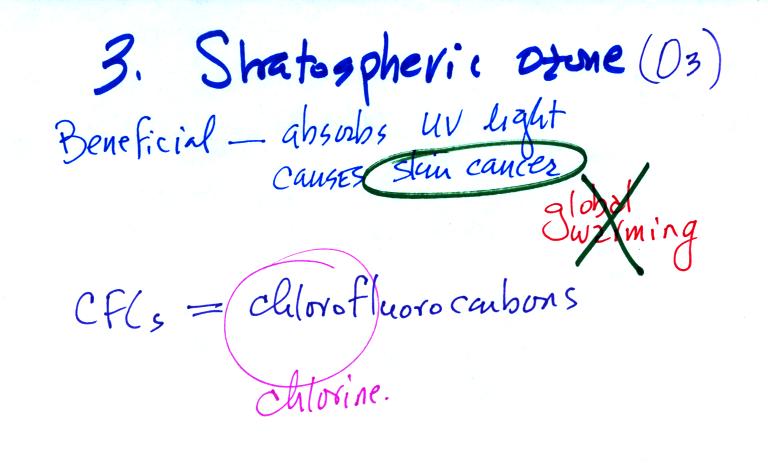 3. Stratospheric ozone (O3)
Beneficial — absorbs UV light
causes skin cancer
global
warming
CFCs = chlorofluorocarbons
chlorine.